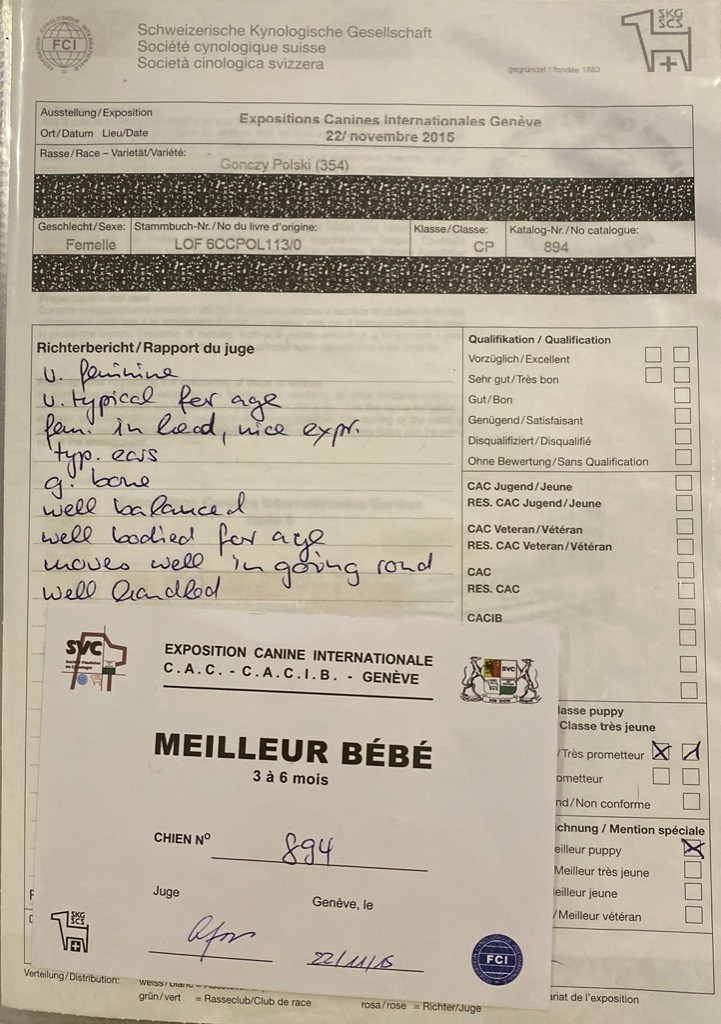 FCI
Schweizerische Kynologische Gesellschaft
Société cynologique suisse
Società cinologica svizzera
SKG
SCS
gegründet / fondée 1883
Ausstellung/Exposition
Expositions Canines Internationales Genève
Ort/Datum Lieu/Date
22/ novembre 2015
Rasse/Race – Varietät/Variété:
Gonczy Polski (354)
Geschlecht/Sexe: Stammbuch-Nr./No du livre d'origine: Klasse/Classe: Katalog-Nr./No catalogue:
Femelle LOF 6CCPOL113/0 CP 894
Richterbericht/Rapport du juge
v. feminine
v. typical for age
fem. in head, nice expr.
typ. ears
g. bone
well balanced
well bodied for age
moves well in going rond
well handled
Qualifikation / Qualification
Vorzüglich/Excellent
Sehr gut/Très bon
Gut/Bon
Genügend/Satisfaisant
Disqualifiziert/Disqualifié
Ohne Bewertung/Sans Qualification
CAC Jugend/Jeune
RES. CAC Jugend/Jeune
CAC Veteran/Vétéran
RES. CAC Veteran/Vétéran
CAC
RES. CAC
CACIB
lasse puppy
Classe très jeune
/Très prometteur
ometteur
nd/Non conforme
chnung / Mention spéciale
eilleur puppy
Meilleur très jeune
eilleur jeune
/ Meilleur vétéran
SVC
EXPOSITION CANINE INTERNATIONALE
C.A.C. - C.A.C.I.B. - GENÈVE
SVC
MEILLEUR BÉBÉ
3 à 6 mois
CHIEN N° 894
Juge
Genève, le
22/11/15
SKG
SCS
FCI
Verteilung/Distribution:
grün/vert = Rasseclub/Club de race
rosa/rose = Richter/Juge
ariat de l'exposition